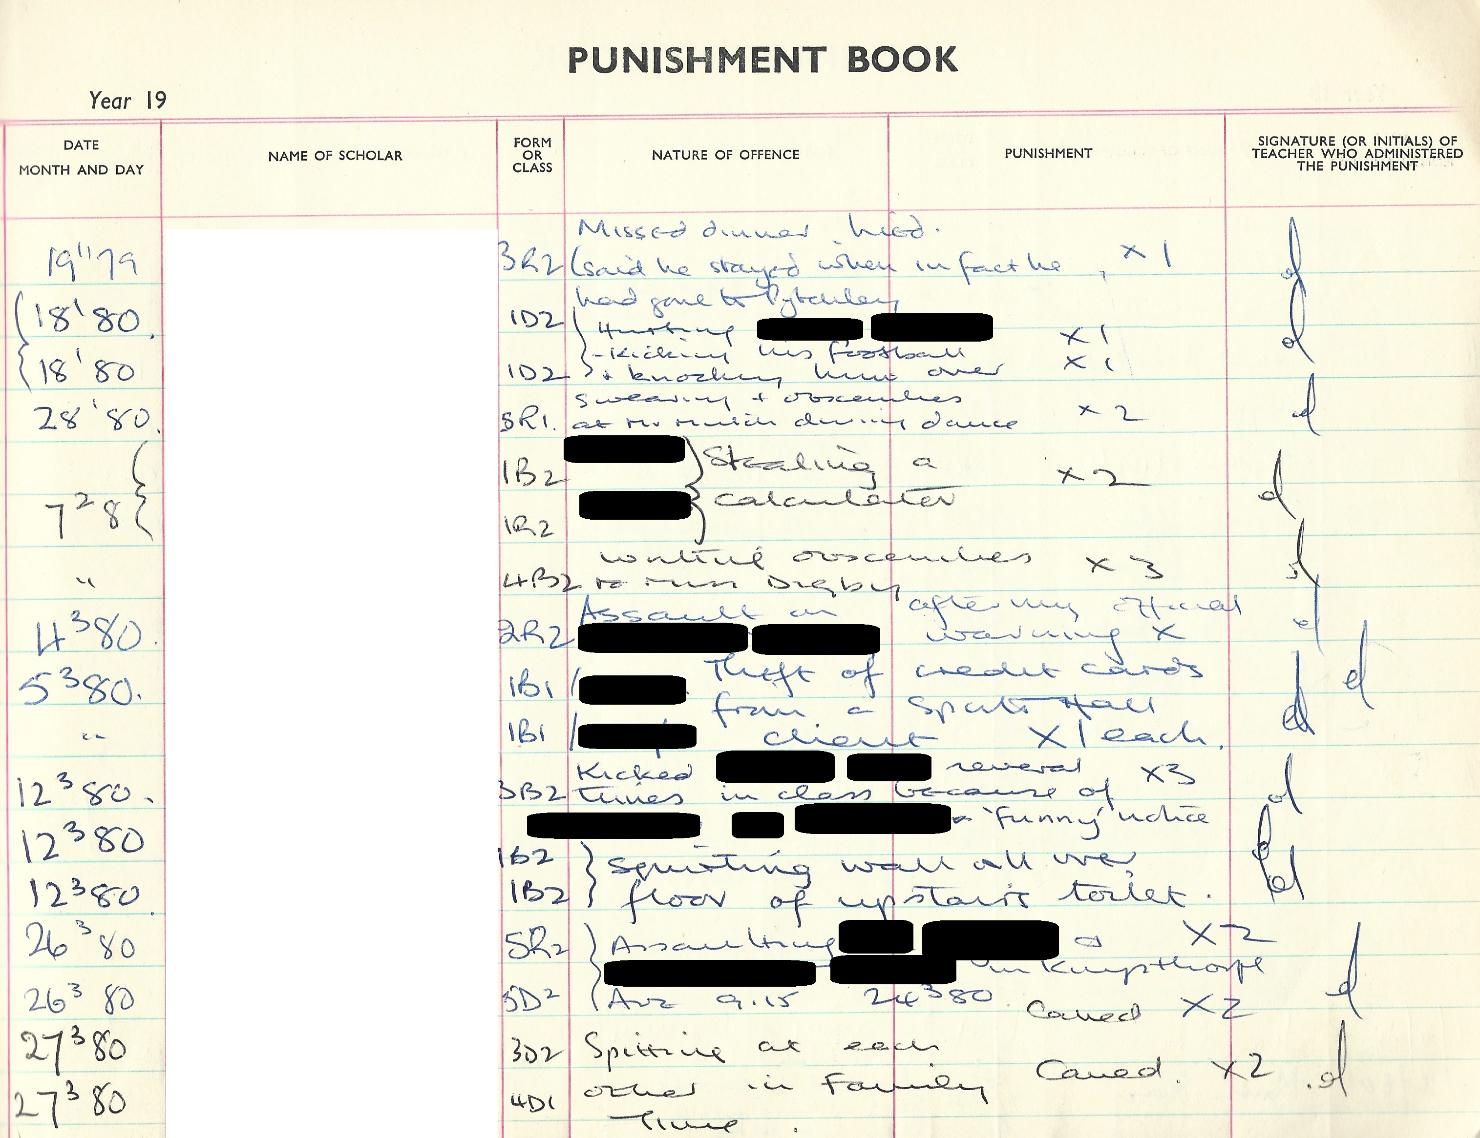 PUNISHMENT BOOK
Year 19
DATE
MONTH AND DAY
NAME OF SCHOLAR
FORM
OR
CLASS
NATURE OF OFFENCE
PUNISHMENT
SIGNATURE (OR INITIALS) OF
TEACHER WHO ADMINISTERED
THE PUNISHMENT
Missed dinner. lied.
19 11 79 3R2 (said he stayed when in fact he x 1
had gone to Pytchley
18 1 80. 1D2 Hurting x 1
- Kicking his football
18 1 80 1D2 + knocking him over x 1
swearing + obscenities
28 1 80. 5R1. at during dance x 2
1B2 Stealing a x 2
7 2 8 1R2 calculator
writing obscenities x 3
" 4B2 to Miss Digby
Assault on after my official
4 3 80. 2R2 warning x
5 3 80. 1B1 Theft of credit cards
from a Sports Hall
" 1B1 client x 1 each.
Kicked several x3
12 3 80. 3B2 times in class because of
12 3 80 a 'funny' notice
1B2 Squirting water all over
12 3 80 1B2 floor of upstairs toilet.
26 3 80 5R2 Assaulting x 2
in Kingsthorpe
26 3 80 5D2 Ave 9.15 24 3 80. Caned x2
27 3 80 3D2 Spitting at each
other in Family Caned. x2
27 3 80 4D1 Time.